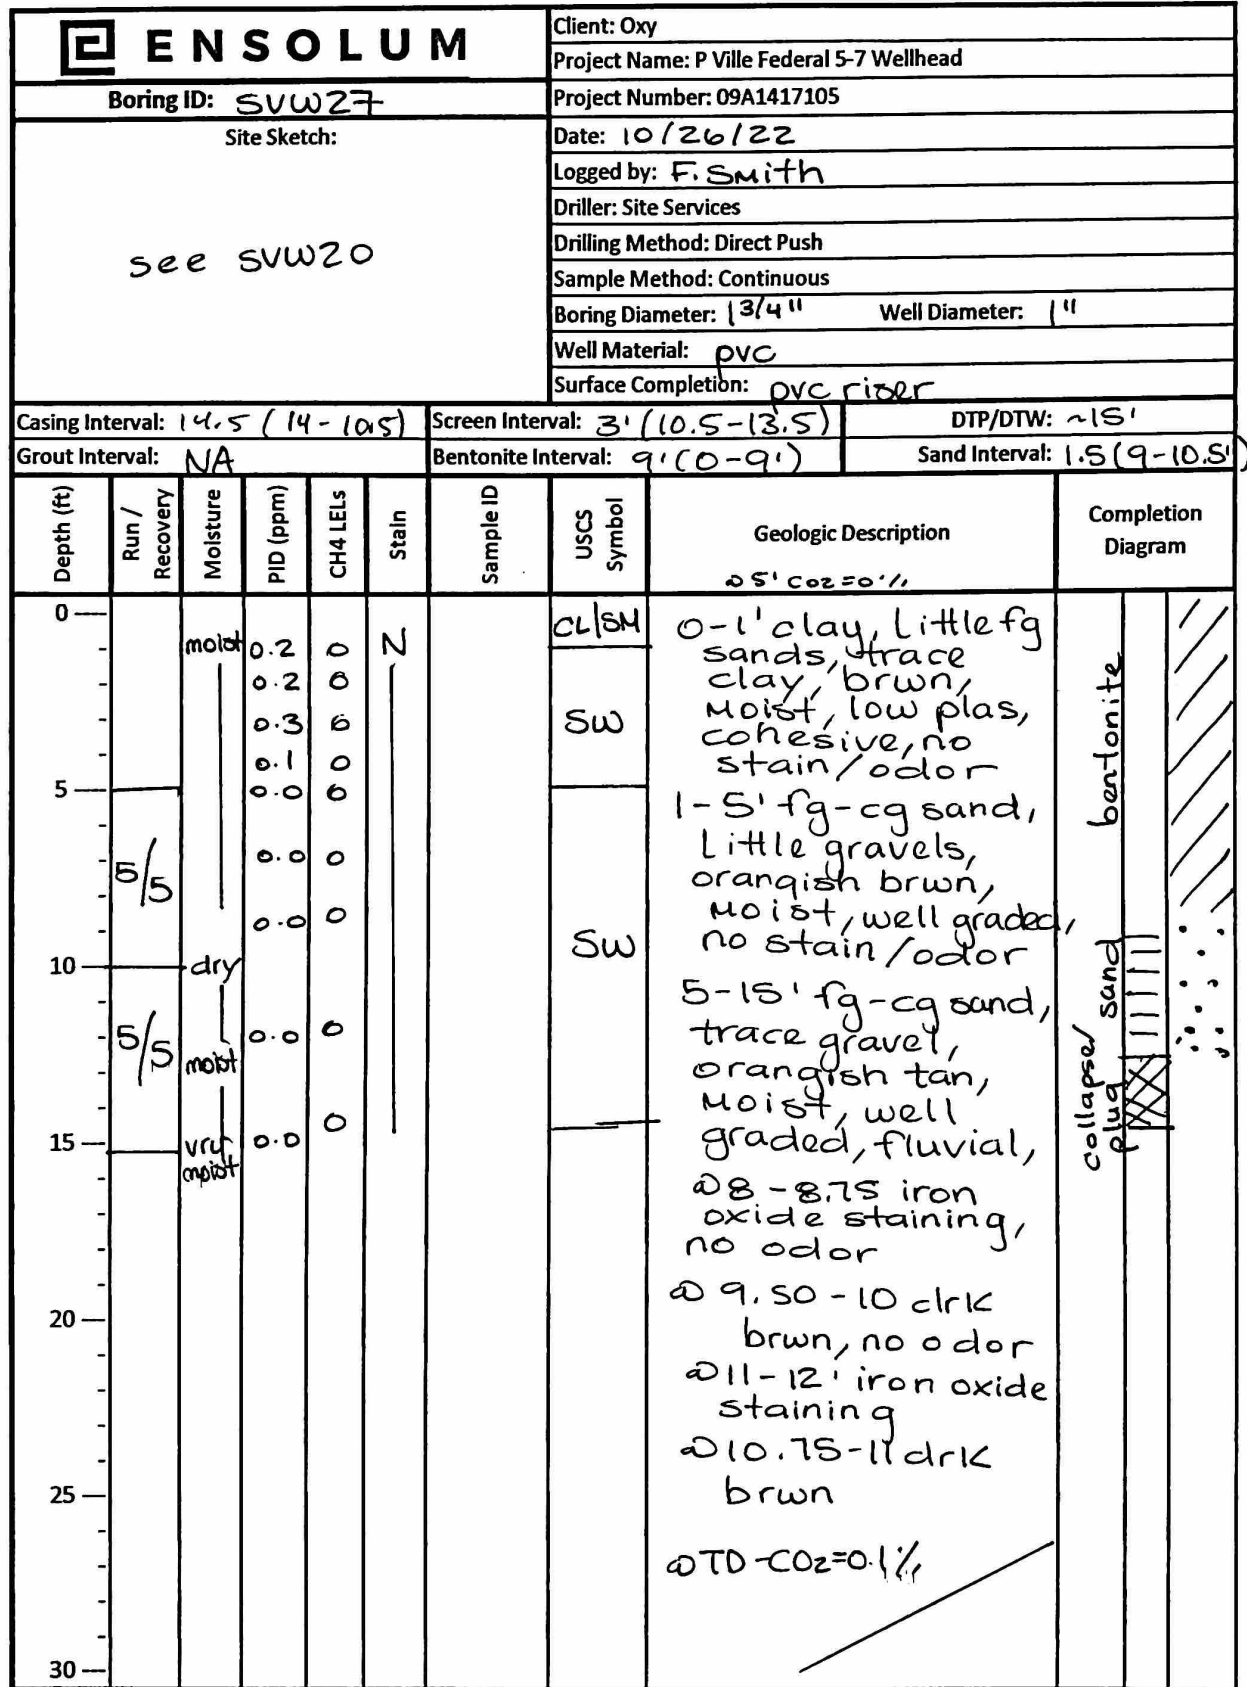 ENSOLUM
Boring ID: SVW27
Site Sketch:
see SVW20
Client: Oxy
Project Name: P Ville Federal 5-7 Wellhead
Project Number: 09A1417105
Date: 10/26/22
Logged by: F. Smith
Driller: Site Services
Drilling Method: Direct Push
Sample Method: Continuous
Boring Diameter: 1 3/4" Well Diameter: 1"
Well Material: pvc
Surface Completion: pvc riser
Casing Interval: 14.5 (14-10.5) Screen Interval: 3' (10.5-13.5) DTP/DTW: ~15'
Grout Interval: NA Bentonite Interval: 9' (0-9') Sand Interval: 1.5 (9-10.5')
Depth (ft)
Run / Recovery
Moisture
PID (ppm)
CH4 LELs
Stain
Sample ID
USCS Symbol
Geologic Description
@ 5' CO2=0%
Completion Diagram
0
5
10
15
20
25
30
5/5
5/5
moist
dry
moist
vry
moist
0.2
0.2
0.3
0.1
0.0
0.0
0.0
0.0
0.0
0
0
0
0
0
0
0
0
0
N
CL/SM
SW
SW
0-1' clay, Little fg
sands, trace
clay, brwn,
Moist, low plas,
cohesive, no
stain/odor
1-5' fg-cg sand,
Little gravels,
orangish brwn,
Moist, well graded,
no stain/odor
5-15' fg-cg sand,
trace gravel,
orangish tan,
Moist, well
graded, fluvial,
@8-8.75 iron
oxide staining,
no odor
@ 9.50-10 drk
brwn, no odor
@11-12' iron oxide
staining
@10.75-11 drk
brwn
@TD-CO2=0.1%
bentonite
sand
collapse/
plug